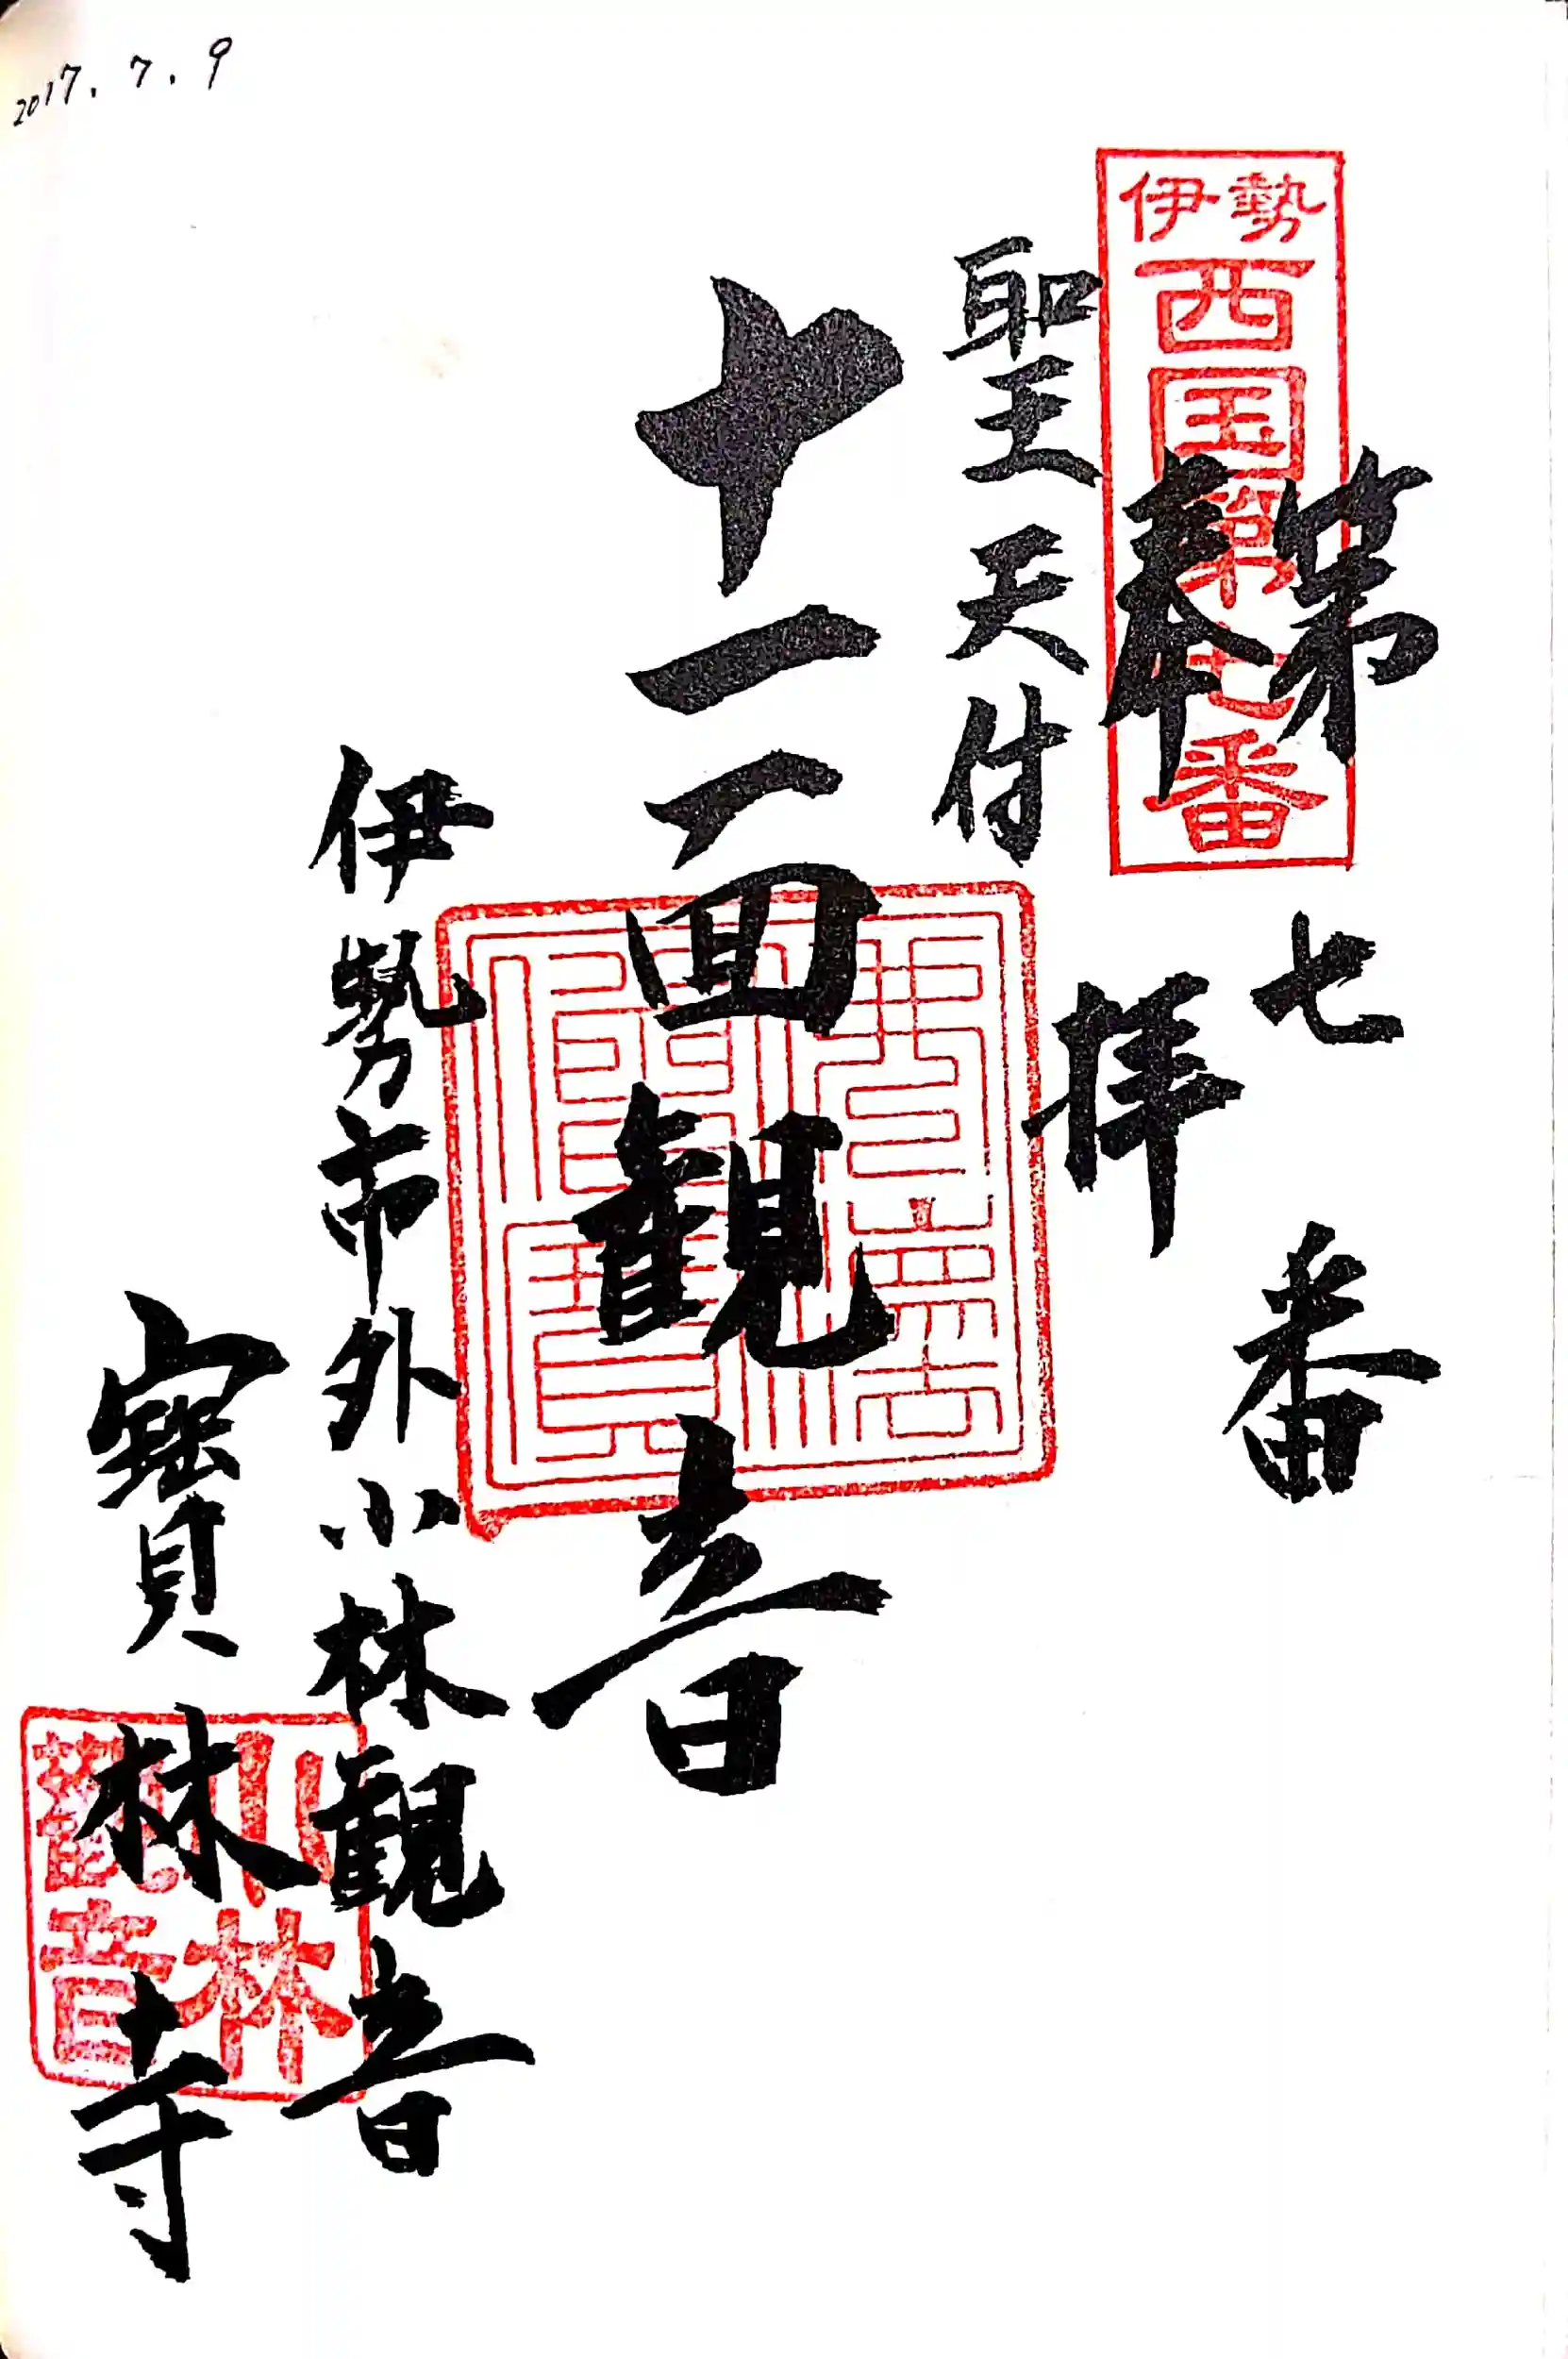 2017.7.9
伊勢
西国第七番
第七番
奉拝
聖王天付
十一面観音
伊勢市外小林観音
寶林寺
小林
観音